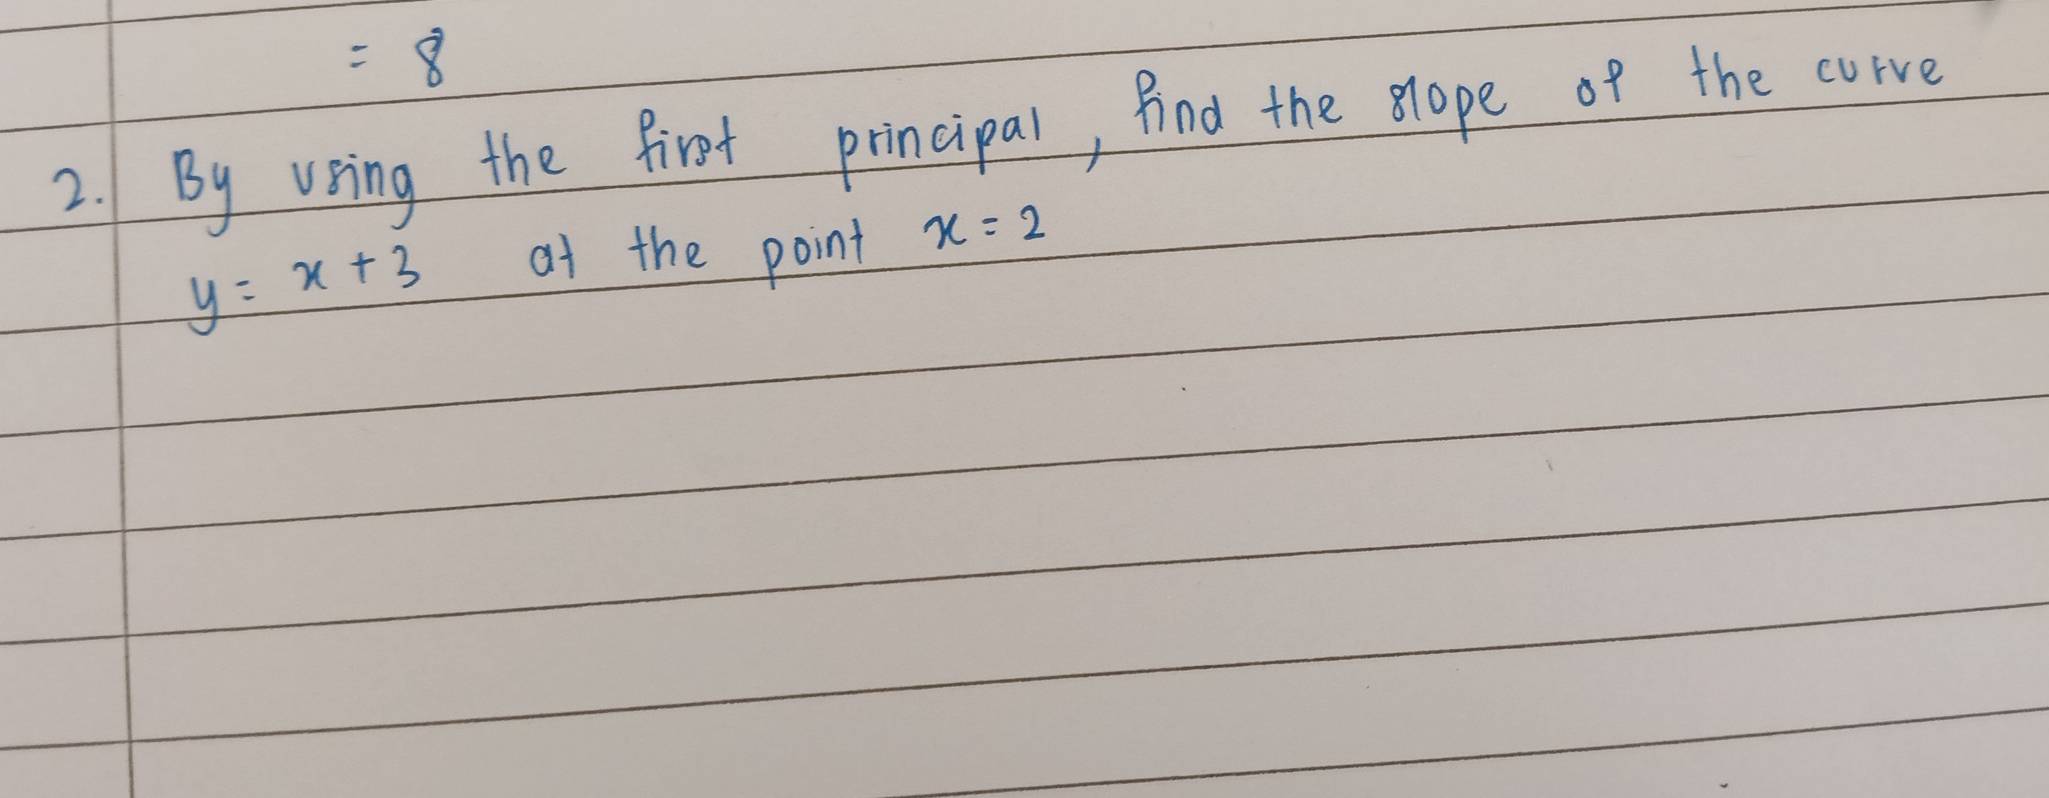 = 8
2. By using the first principal, find the slope of the curve
y = x + 3 at the point x = 2